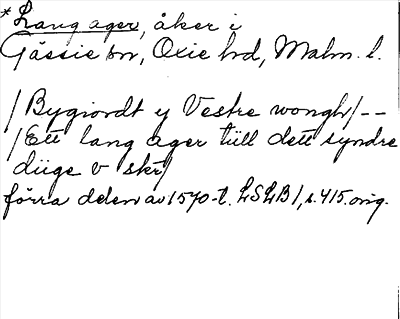 *Lang ager, åker i
Gässie sn, Oxie hrd, Malm. l.
/Bygiordt y Vestre wongh/--
/Ett lang ager till dett syndre
diige v skr/
förra delen av 1570-t. LSLB1, s. 415. orig.